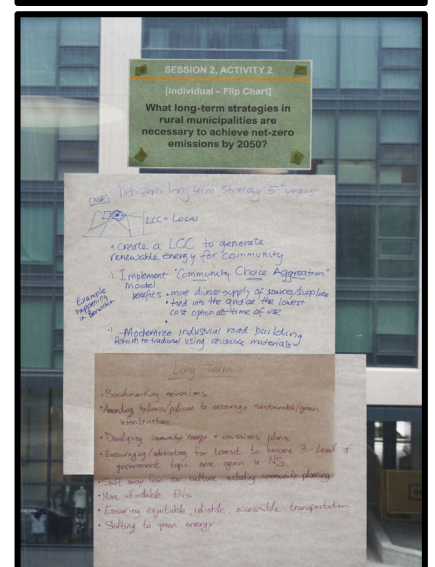 SESSION 2, ACTIVITY 2
[Individual – Flip Chart]
What long-term strategies in
rural municipalities are
necessary to achieve net-zero
emissions by 2050?
Net-Zero long term Strategy 5+
LCC = Local
Create a LCC to generate
renewable energy for community
Implement "Community Choice Aggreation"
model
benefits • more diverse supply of sources/suppliers
• tied into the grid at the lowest
cost option at time of use
Example
happening
in Berwick
Modernize industrial road building
Return to tradional using reusable materials
Long Term
• Benchmarking emissions
• Amending bylaws/policies to encourage sustainable/green
infrastructure
• Developing community energy + emissions plans
• Encouraging/advocating for transit to become 3-level of
government topic once again in NS
• Shift away from car culture including community planning
• More affordable EVs
• Ensuring equitable, reliable, accessible transportation
• Shifting to green energy